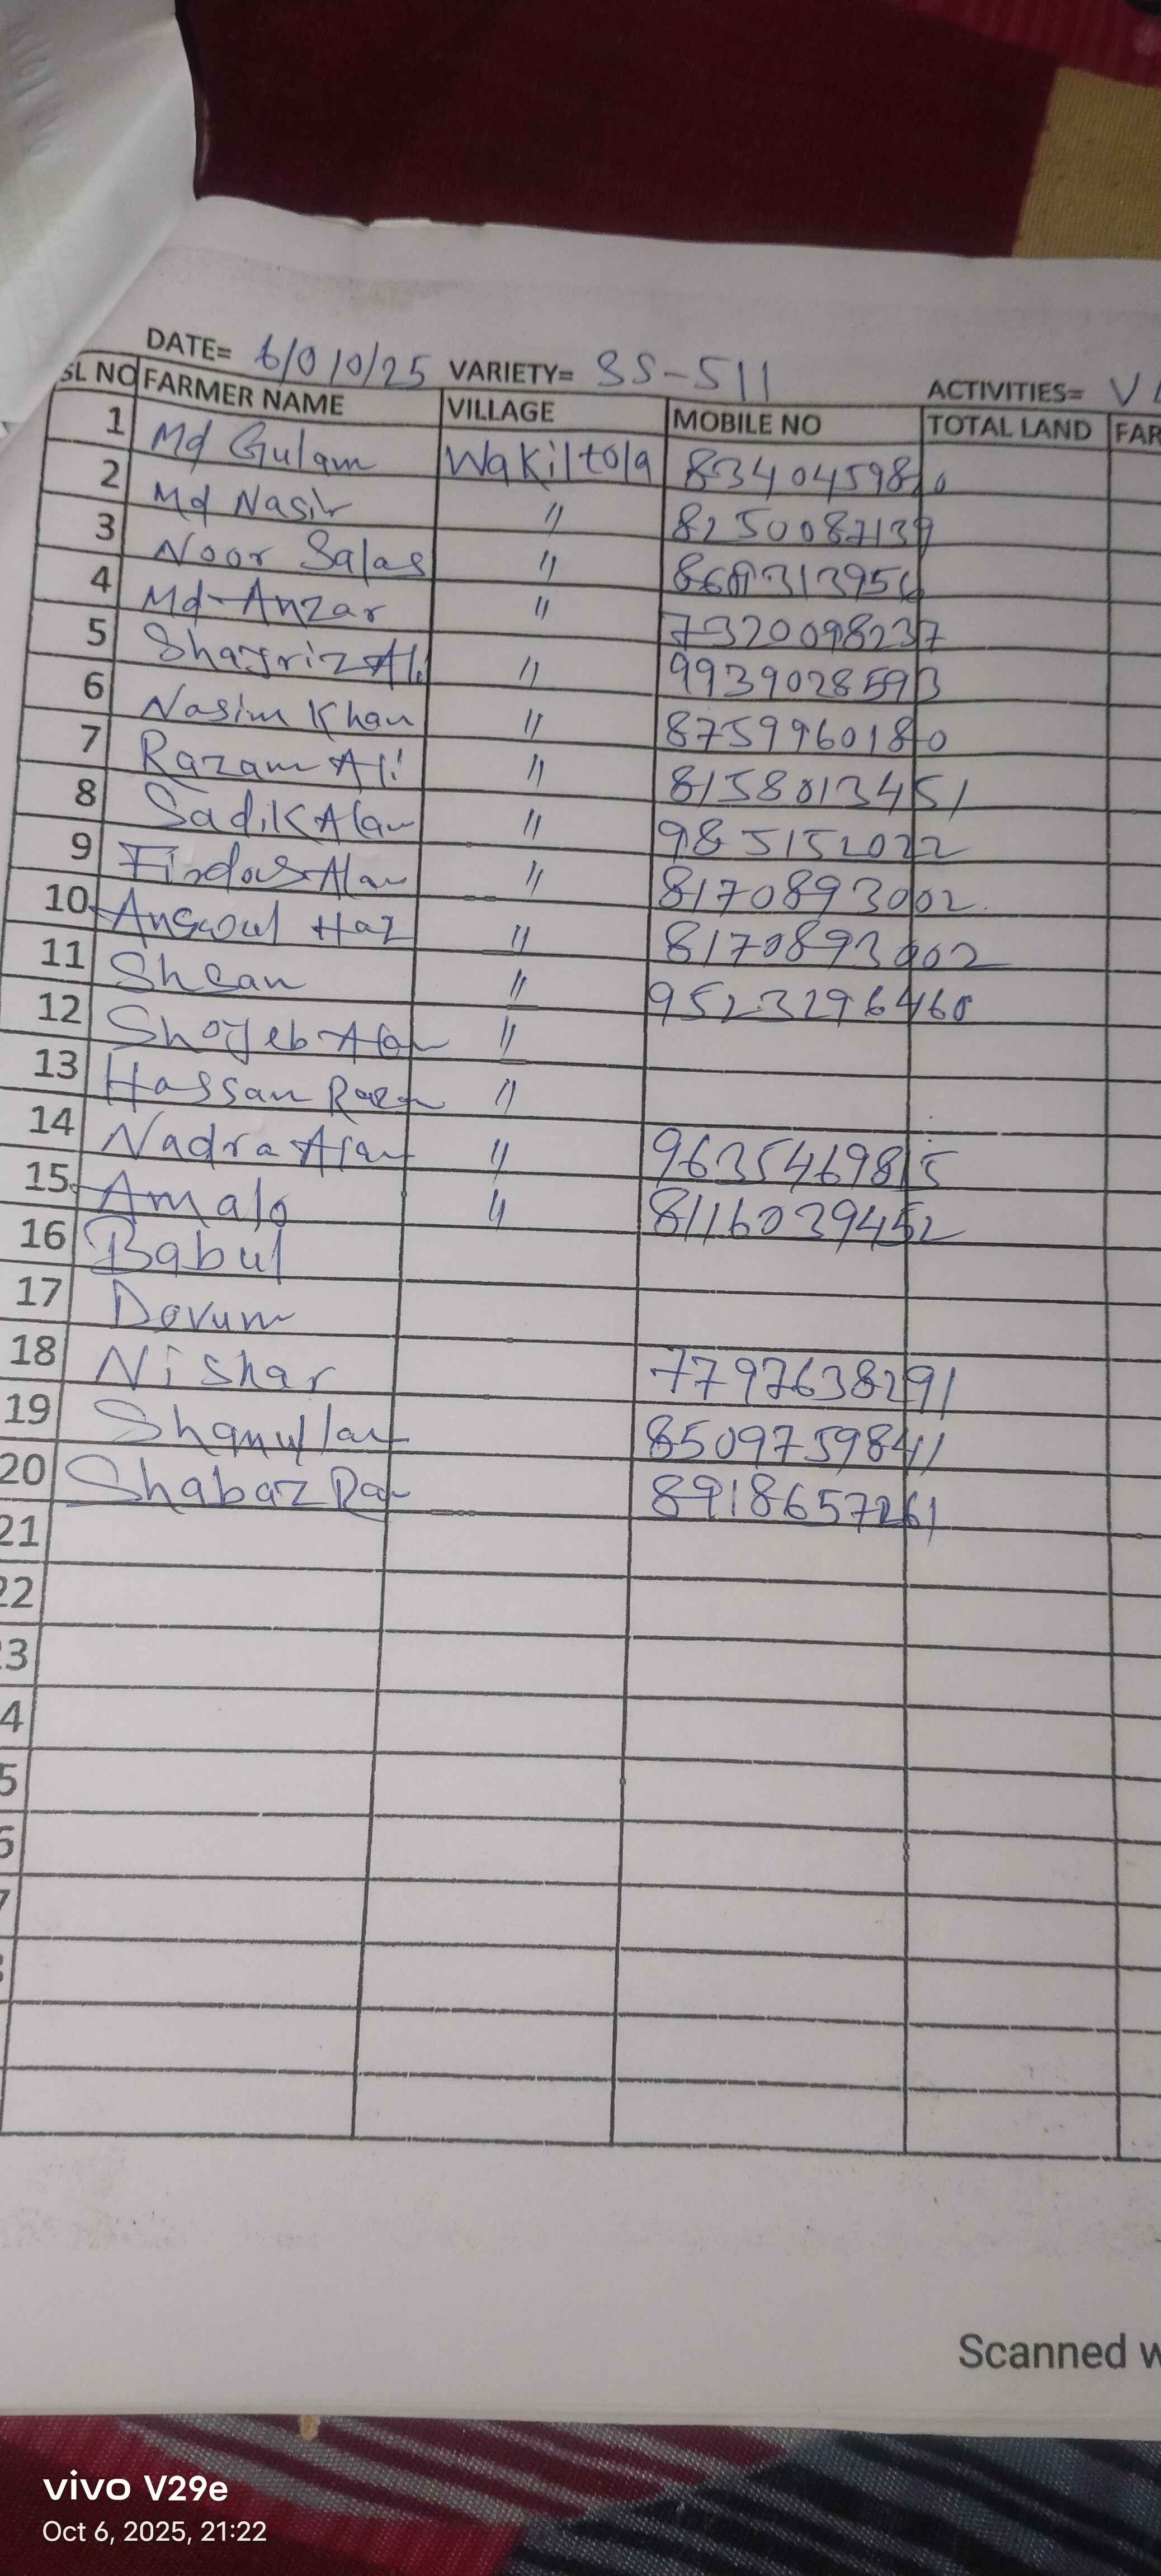 DATE= 6/010/25 VARIETY= SS-511 ACTIVITIES=
SL NO FARMER NAME VILLAGE MOBILE NO TOTAL LAND FAR
1 Md Gulam Wakiltola 8340459820
2 Md Nasir " 8250087139
3 Noor Salas "
4 Md-Anzar " 7320098237
5 Ali " 9939028593
6 Nasim Khan " 8759960180
7 Razam Ali " 8158013451
8 Sadik Alam " 985152022
9 Firdos Alam " 8170893002
10 Haz " 8170893002
11 Shean " 9523296460
12 Shoyeb Alam "
13 Hassan Raza "
14 Nadra Alam " 9635469815
15 Amalo " 8116039452
16 Babul
17 Dovum
18 Nishar 7797638291
19 8509759841
20 Shabaz 8918657261
21
22
3
4
5
6
7
Scanned w
vivo V29e
Oct 6, 2025, 21:22